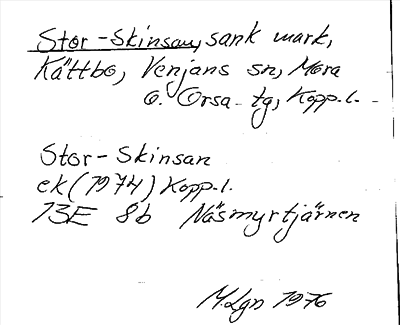 Stor-Skinsan, sank mark,
Kättbo, Venjans sn, Mora
o. Orsa tg, Kopp.l.
Stor-Skinsan
ek (1974) Kopp.l.
13E 8b Näsmyrtjärnen
M.Lgn 1976